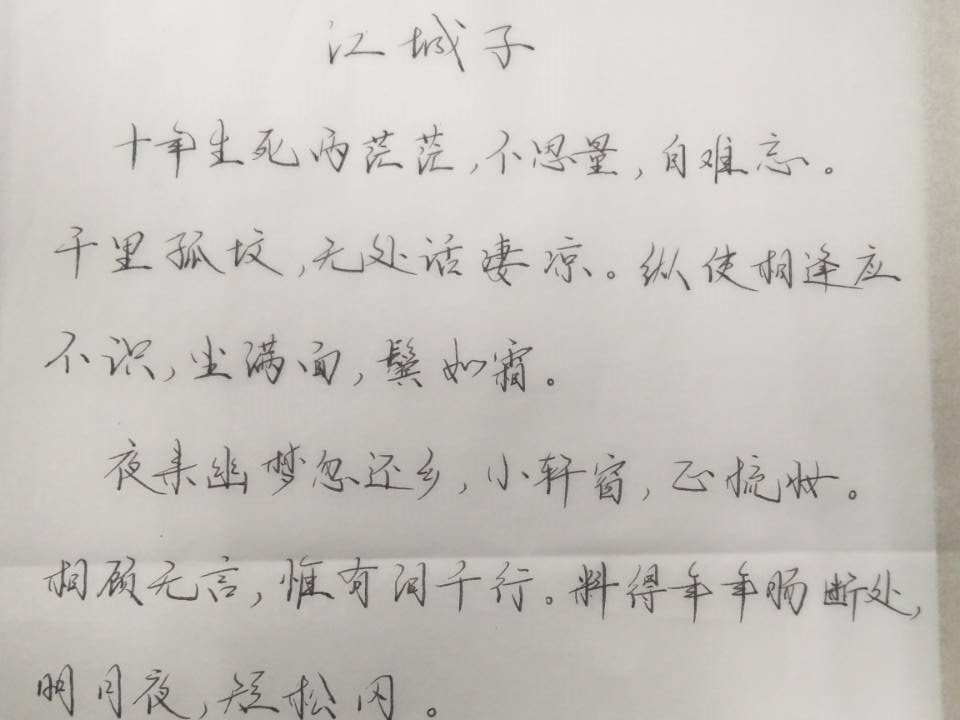 江城子
十年生死两茫茫,不思量,自难忘。
千里孤坟,无处话凄凉。纵使相逢应
不识,尘满面,鬓如霜。
夜来幽梦忽还乡,小轩窗,正梳妆。
相顾无言,惟有泪千行。料得年年肠断处,
明月夜,短松冈。